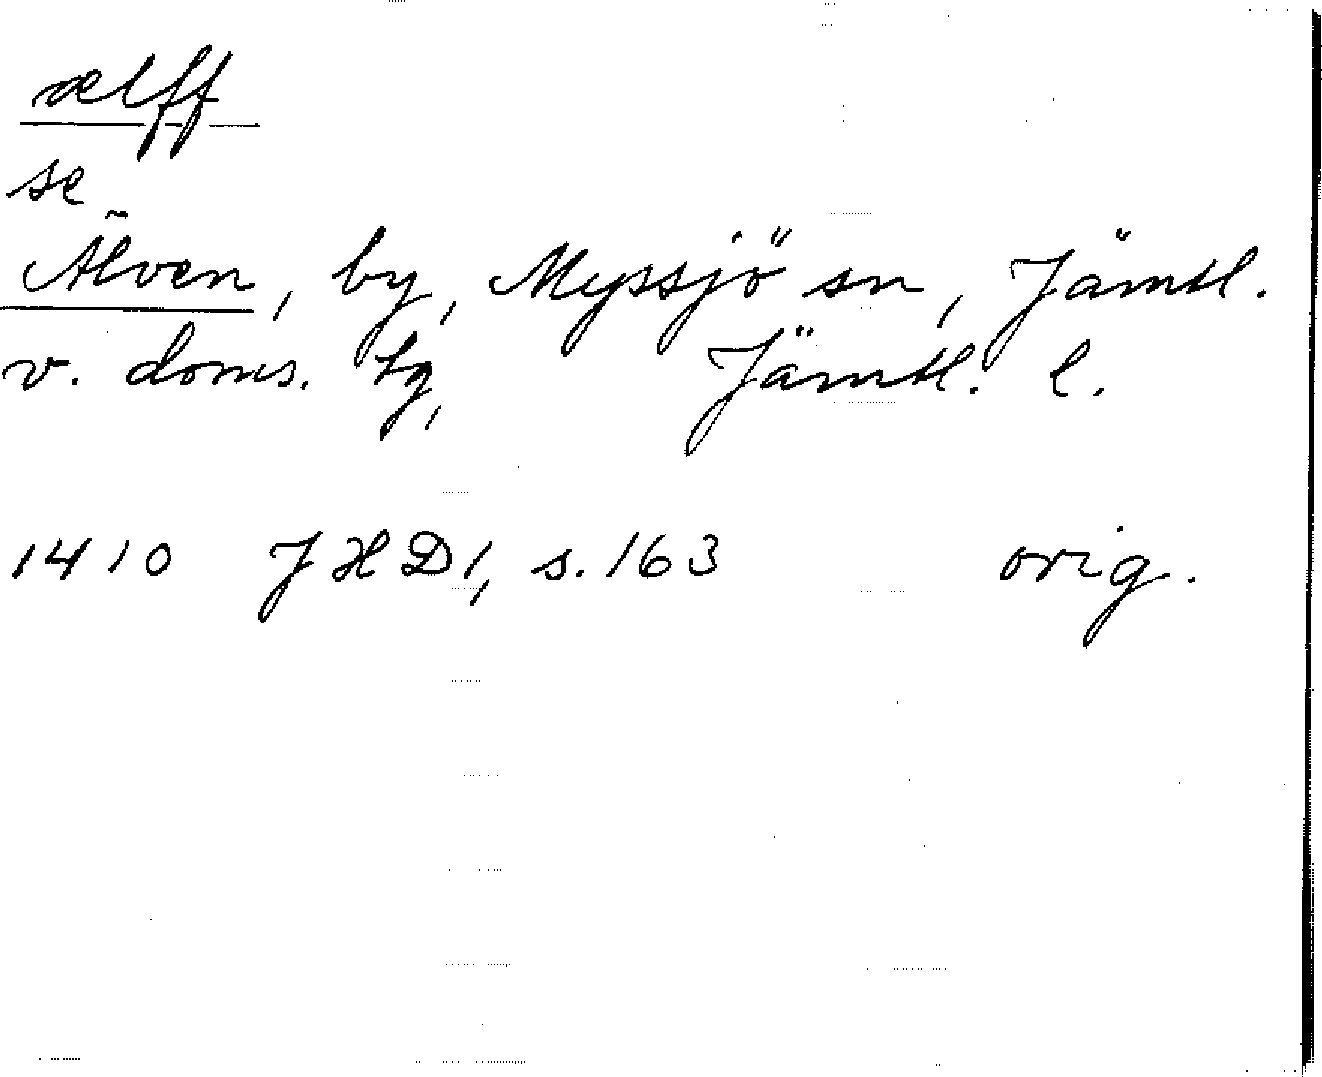 ælff
se
Älven, by, Myssjö sn, Jämtl.
v. doms. tg, Jämtl. l.
1410 JHD1, s. 163 orig.